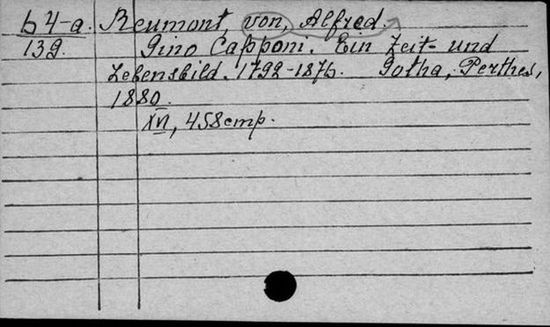 b 4-a. Reumont, von, Alfred.
139. Gino Capponi. Ein Zeit- und
Lebensbild. 1792-1876. Gotha, Perthes,
1880.
XVI, 458 cmp.